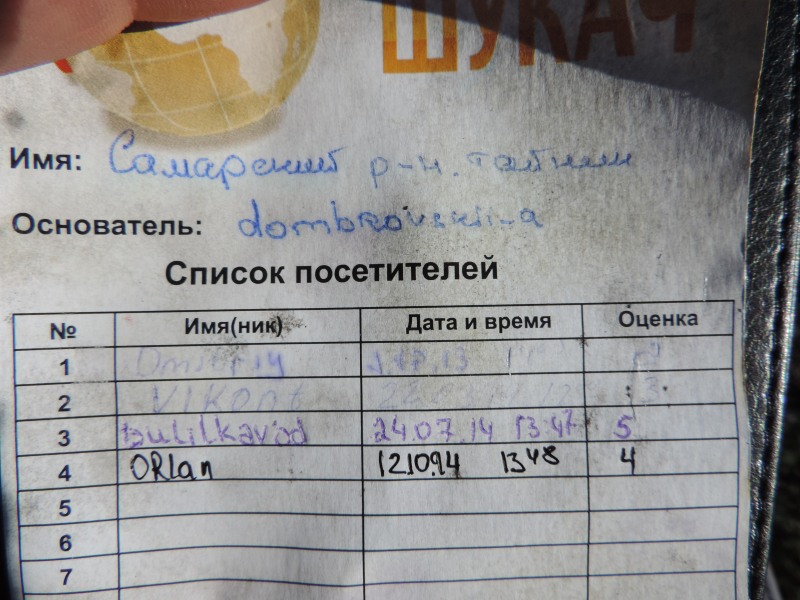 ШУКАЧ
Имя: Самарский р-н. тайник
Основатель: dombrovskii-a
Список посетителей
№ Имя(ник) Дата и время Оценка
1 Dmitriy
2 Vikont
3 bulilkavod 24.07.14 13:47 5
4 ORlan 121094 1348 4
5
6
7